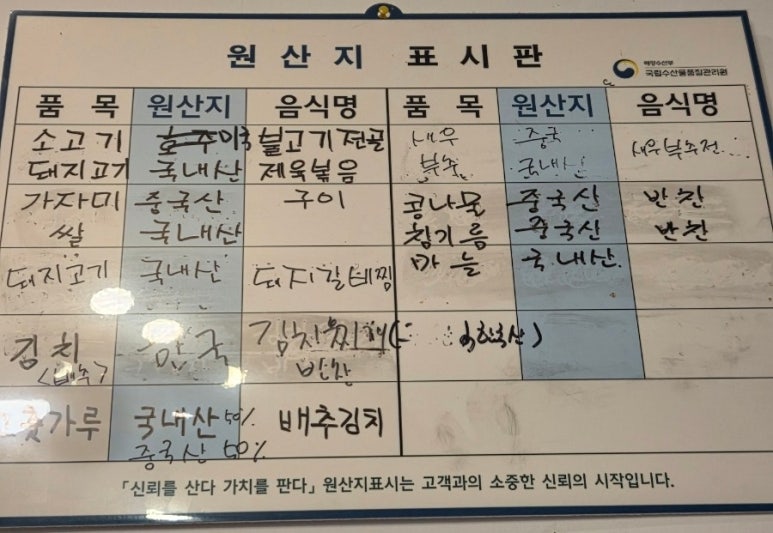 원산지 표시판
해양수산부
국립수산물품질관리원
품 목 원산지 음식명 품 목 원산지 음식명
소고기 호주 미국 불고기전골
돼지고기 국내산 제육볶음
새우 중국
부추 국내산
새우부추전
가자미 중국산 구이
쌀 국내산
콩나물 중국산 반찬
참기름 중국산 반찬
마늘 국내산
돼지고기 국내산 돼지갈비찜
김치
<배추>
반찬
국내산 50% 배추김치
중국산 50%
「신뢰를 산다 가치를 판다」 원산지표시는 고객과의 소중한 신뢰의 시작입니다.